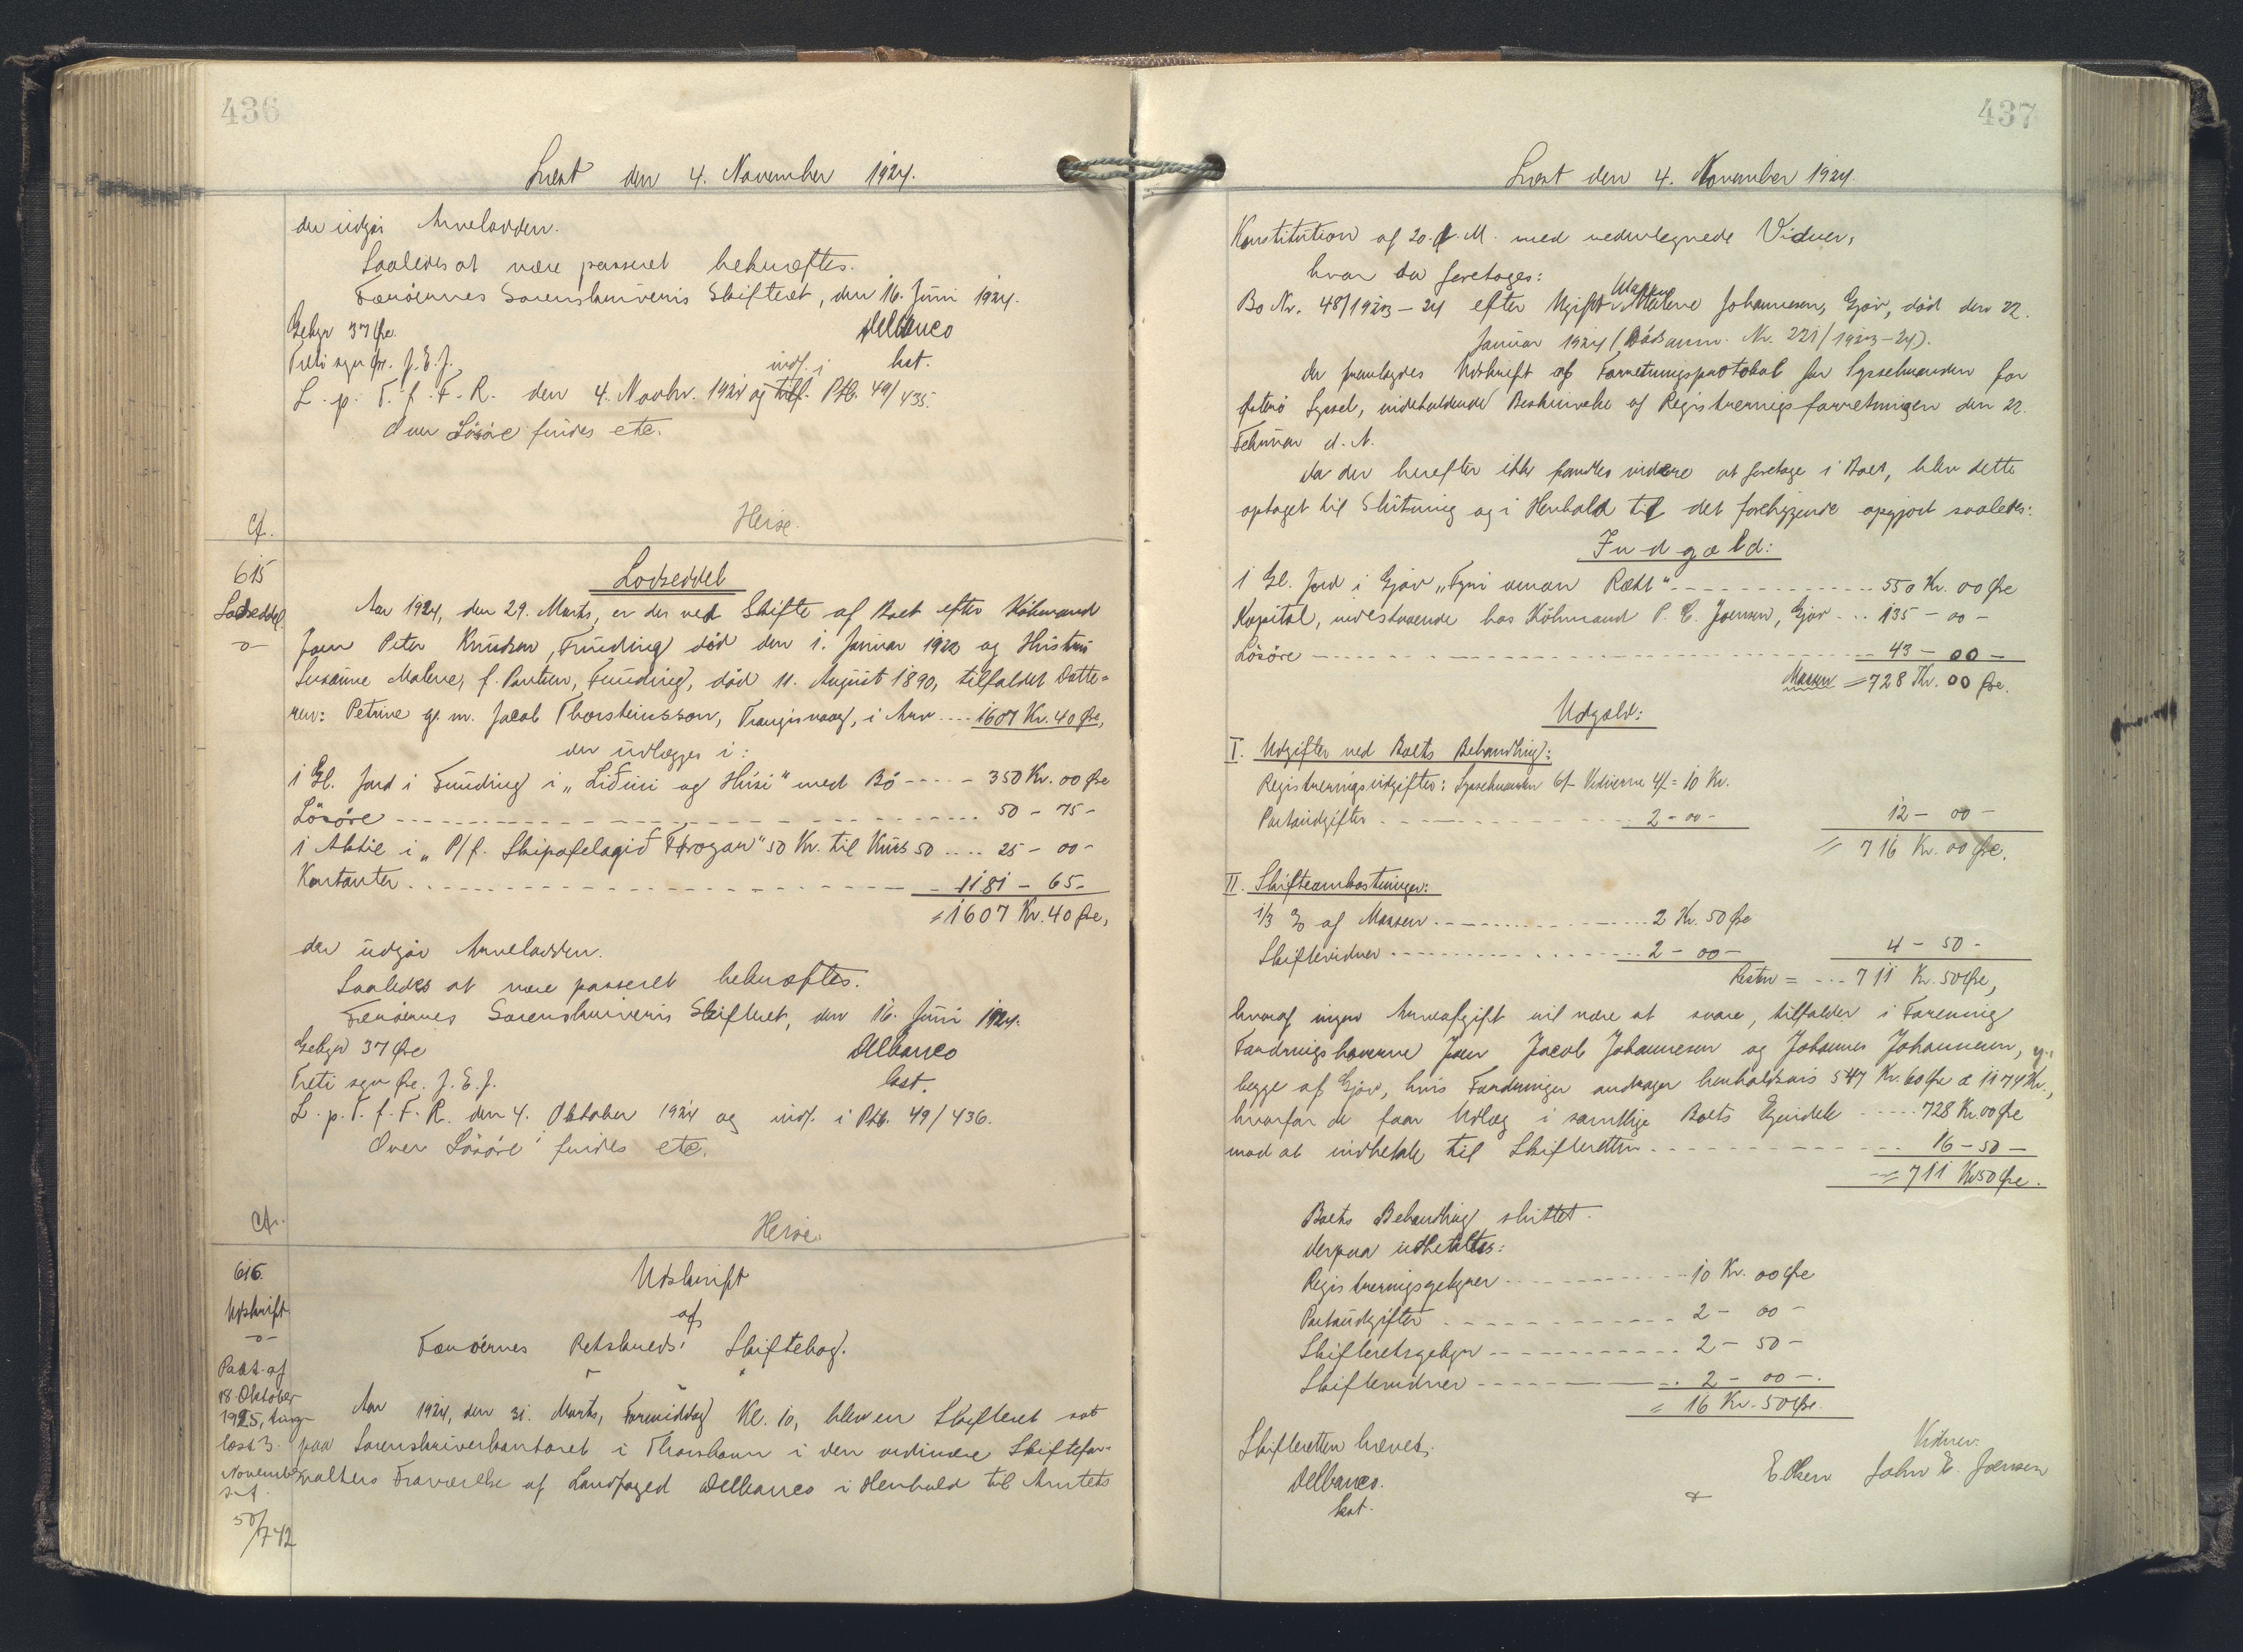 436
Læst den 4. November 1924.
der udgør Arvelodden.
Saaledes at være passeret bekræftes.
Færøernes Sorenskriveris Skifteret, den 16. Juni 1924.
Gebyr 37 Øre. Delbanco
Treti syv Ør. J.E.J. kst.
L. p. T. f. F. R. den 4. Novbr. 1924 og indf. i Ptb. 49/435.
Over Løsøre findes etc.
Cf. Heise.
615
Lodseddel
Lodseddel.
Aar 1924, den 29. Marts, er der ved Skifte af Boet efter Købmand
Joen Peter Knudsen, Funding død den 1. Januar 1922 og Hustru
Susanne Malene, f. Poulsen, Funding, død 11. August 1890, tilfaldet Datte=
ren: Petrine g. m. Jacob Thorsteinsson, Trangisvaag, i Arv .... 1607 Kr. 40 Øre,
der udlægges i:
1 Gl. Jord i Funding i „Liðini og Húsi" med Bø ---- 350 Kr. 00 Øre
Løsøre ---- 50 - 75 -
1 Aktie i „P/f. Skipafelagið Føroyar" 50 Kr. til Kurs 50 .... 25 - 00 -
Kontanter ---- 1181 - 65 -
= 1607 Kr. 40 Øre,
der udgør Arvelodden.
Saaledes at være passeret bekræftes.
Færøernes Sorenskriveris Skifteret, den 16. Juni 1924.
Gebyr 37 Øre Delbanco
Treti syv Øre. J.E.J. kst.
L. p. T. f. F. R. den 4. Oktober 1924 og indf. i Ptb. 49/436.
Over Løsøre findes etc.
Cf. Heise.
616.
Udskrift
Udskrift
af
Færøernes Retskreds' Skiftebog.
Paat. af
18. Oktober
1925, ting-
læst 3.
November
s. A.
50/742
Aar 1924, den 31. Marts, Formiddag Kl. 10, blev en Skifteret sat
paa Sorenskriverkontoret i Thorshavn i den ordinære Skiftefor-
valters Fraværelse af Landfoged Delbanco i Henhold til Amtets
437
Læst den 4. November 1924.
Konstitution af 20. d. M. med undertegnede Vidner,
hvor da foretoges:
Bo Nr. 48/1923-24 efter Ugift Malene Johannesen, Gjov, død den 22.
Januar 1924 (Dødsanm. Nr. 221/1923-24).
Der fremlagdes Udskrift af Forretningsprotokol for Sysselmanden for
Østerø Syssel, indeholdende Beskrivelse af Registreringsforretningen den 22.
Februar d. A.
Da der herefter ikke fandtes videre at foretage i Boet, blev dette
optaget til Slutning og i Henhold til det foreliggende opgjort saaledes:
Indgæld:
1 Gl. Jord i Gjov „Fyri uman Rætt" ---- 550 Kr. 00 Øre
Kapital, indestaaende hos Købmand P. C. Joensen, Gjov ... 135 - 00 -
Løsøre ---- 43 - 00 -
Massen = 728 Kr. 00 Øre.
Udgæld:
I. Udgifter ved Boets Behandling:
Registreringsudgifter: Sysselmanden 6/- Vidnerne 4/- = 10 Kr.
Portoudgifter ---- 2 - 00 - 12 - 00 -
= 716 Kr. 00 Øre.
II. Skifteomkostninger:
1/3 % af Massen ---- 2 Kr. 50 Øre
Skiftevidner ---- 2 - 00 - 4 - 50 -
Resten = ... 711 Kr. 50 Øre,
hvoraf ingen Arveafgift vil være at svare, tilfalder i Forening
Fordringshaverne Joen Jacob Johannesen og Johannes Johannesen,
begge af Gjov, hvis Fordringer andrager henholdsvis 547 Kr. 60 Øre & 1174 Kr.,
hvorfor de faar Udlæg i samtlige Boets Ejendele ---- 728 Kr. 00 Øre
mod at indbetale til Skifteretten ---- 16 - 50 -
= 711 Kr. 50 Øre.
Boets Behandling sluttet.
Derpaa udbetaltes:
Registreringsgebyrer ---- 10 Kr. 00 Øre
Portoudgifter ---- 2 - 00 -
Skifteretsgebyr ---- 2 - 50 -
Skiftevidner ---- 2 - 00 -
= 16 Kr. 50 Øre.
Skifteretten hævet.
Vidner:
Delbanco. E. Olsen John E. Joensen
kst.